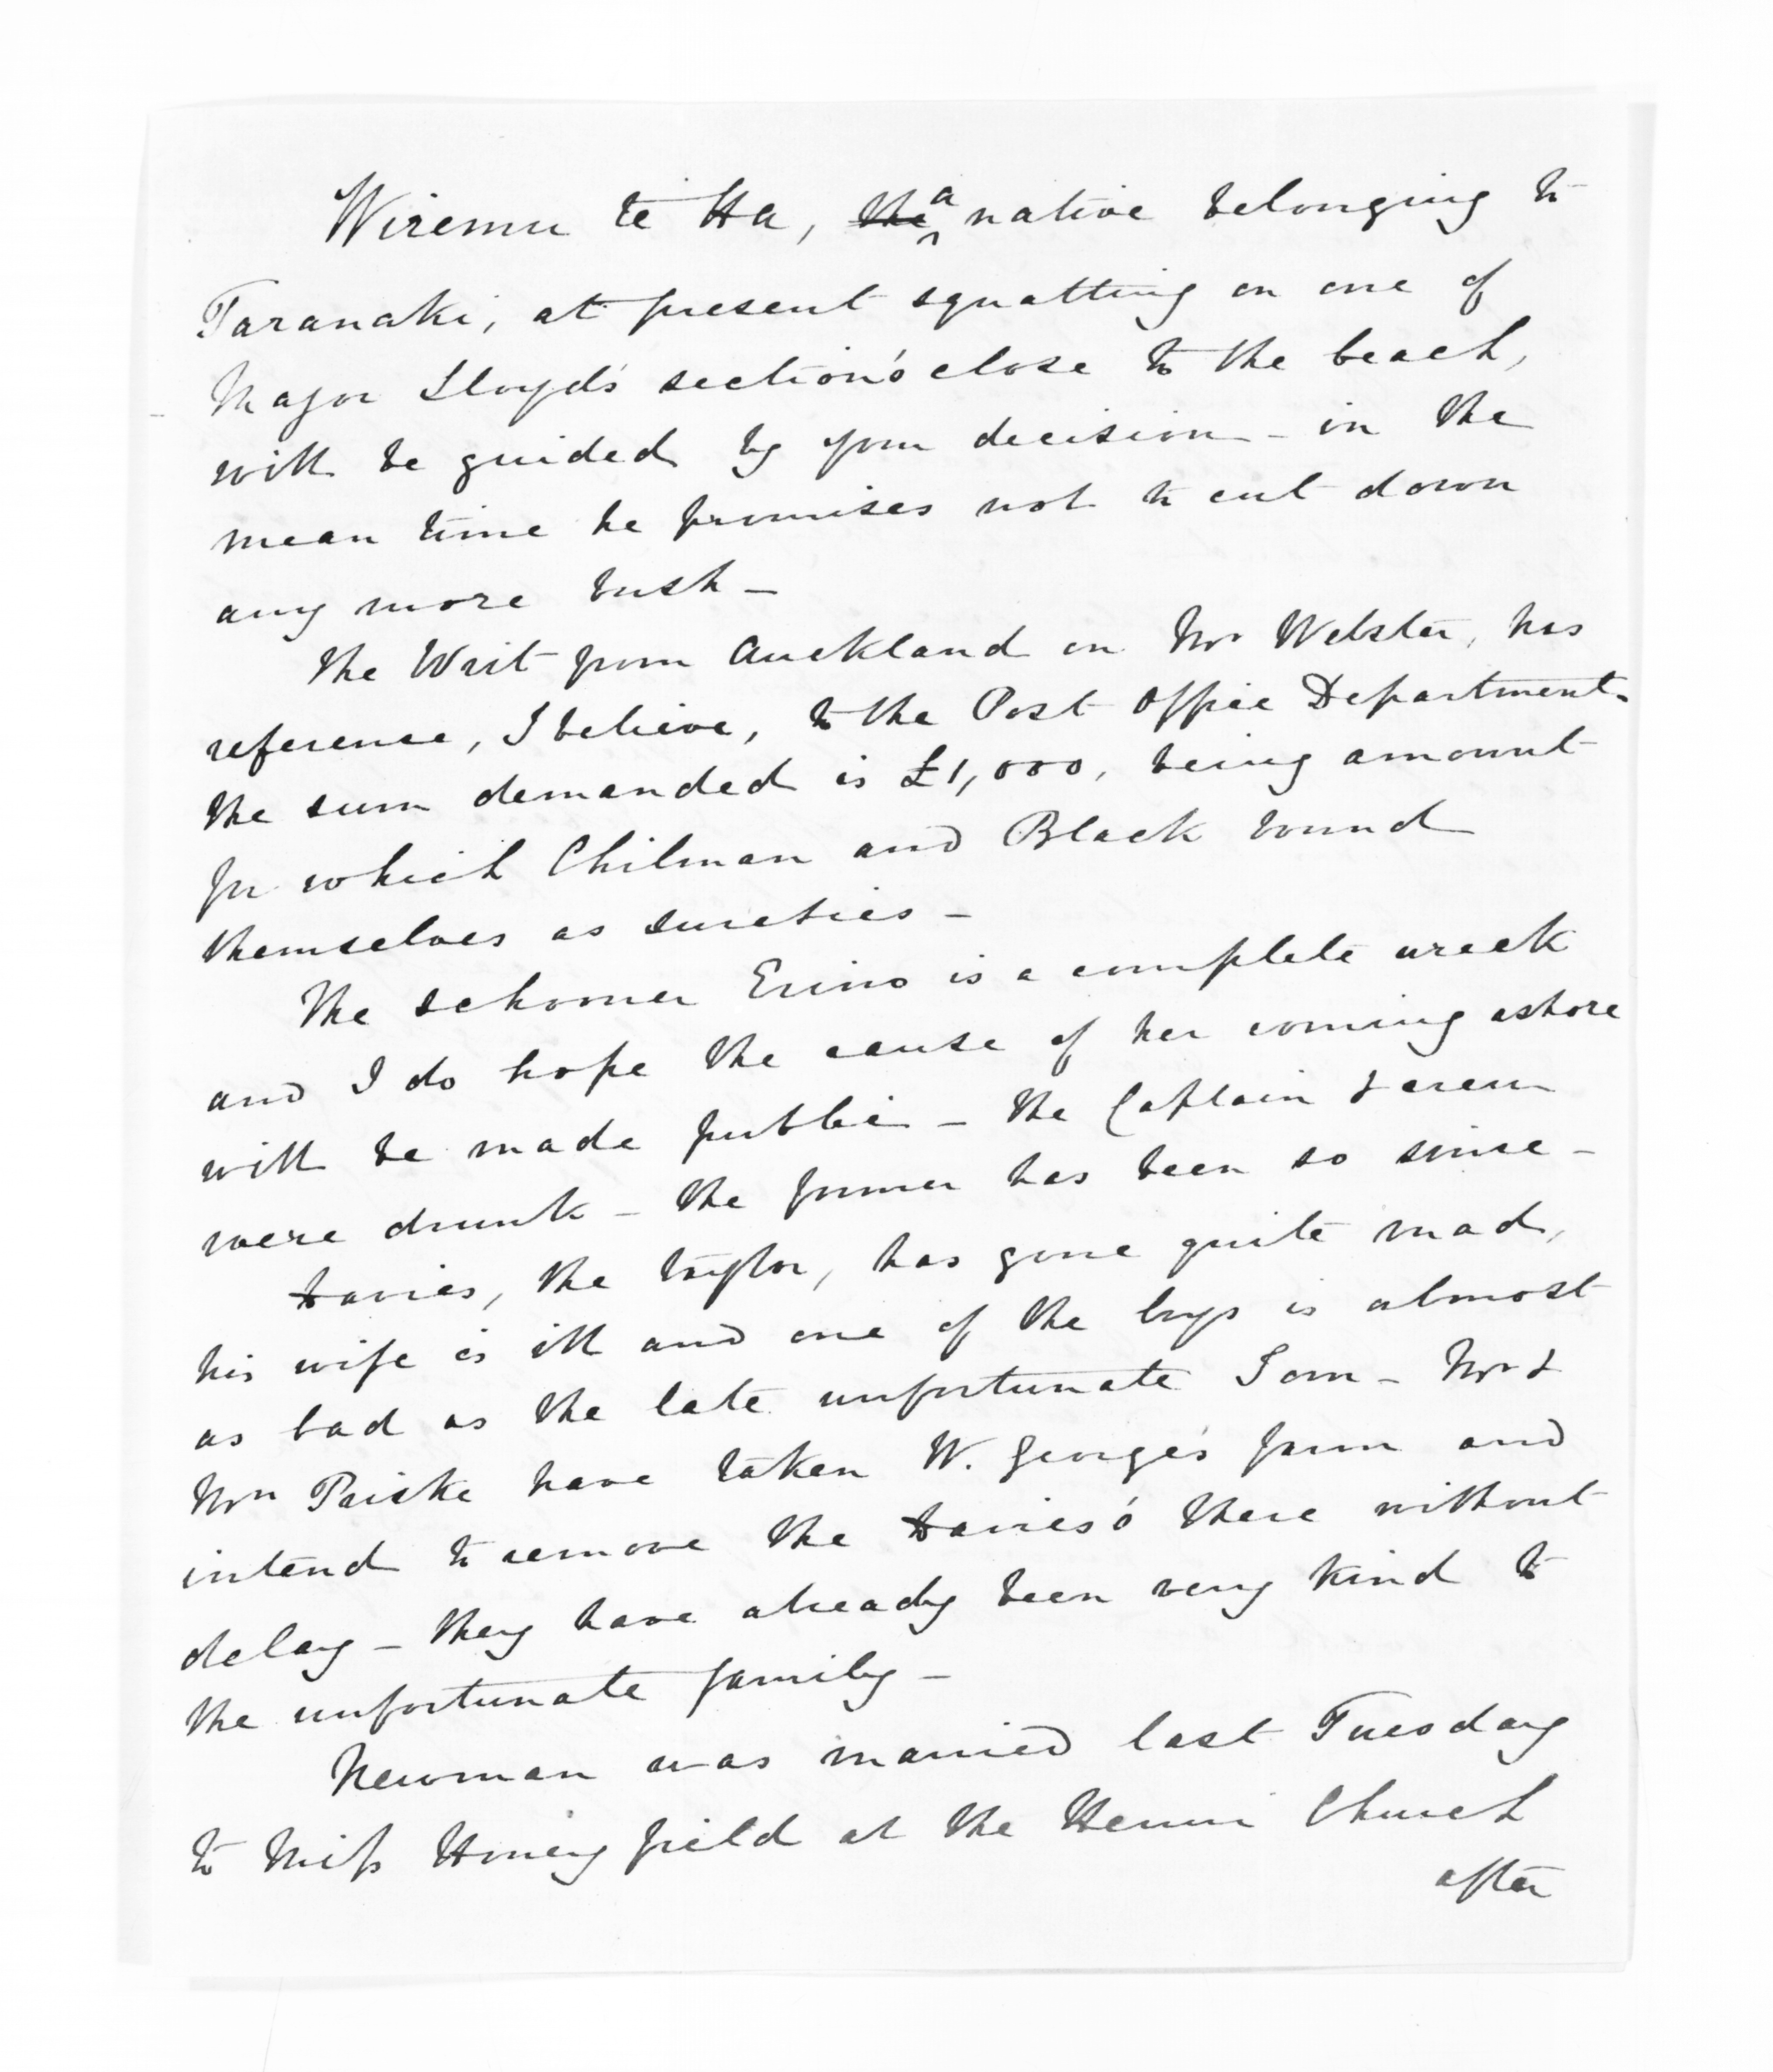 Wiremu te Ha, the a native belonging to
Taranaki, at present squatting on one of
Major Lloyd's section's close to the beach,
will be guided by your decision - in the
mean time he promises not to cut down
any more bush -
The Writ from Auckland on Mr Webster, has
reference, I believe, to the Post Office Department.
the sum demanded is £1,000, being amount
for which Chilman and Black bound
themselves as sureties -
The schooner Erino is a complete wreck
and I do hope the cause of her coming ashore
will be made public - the Captain & crew
were drunk - the former has been so since -
Davies, the taylor, has gone quite mad,
his wife is ill and one of the boys is almost
as bad as the late unfortunate Tom - Mr &
Mrs Priske have taken W. George's farm and
intend to remove the Davies's there without
delay - they have already been very kind to
the unfortunate family -
Newman was married last Tuesday
to Miss Honeyfield at the Henui Church
after